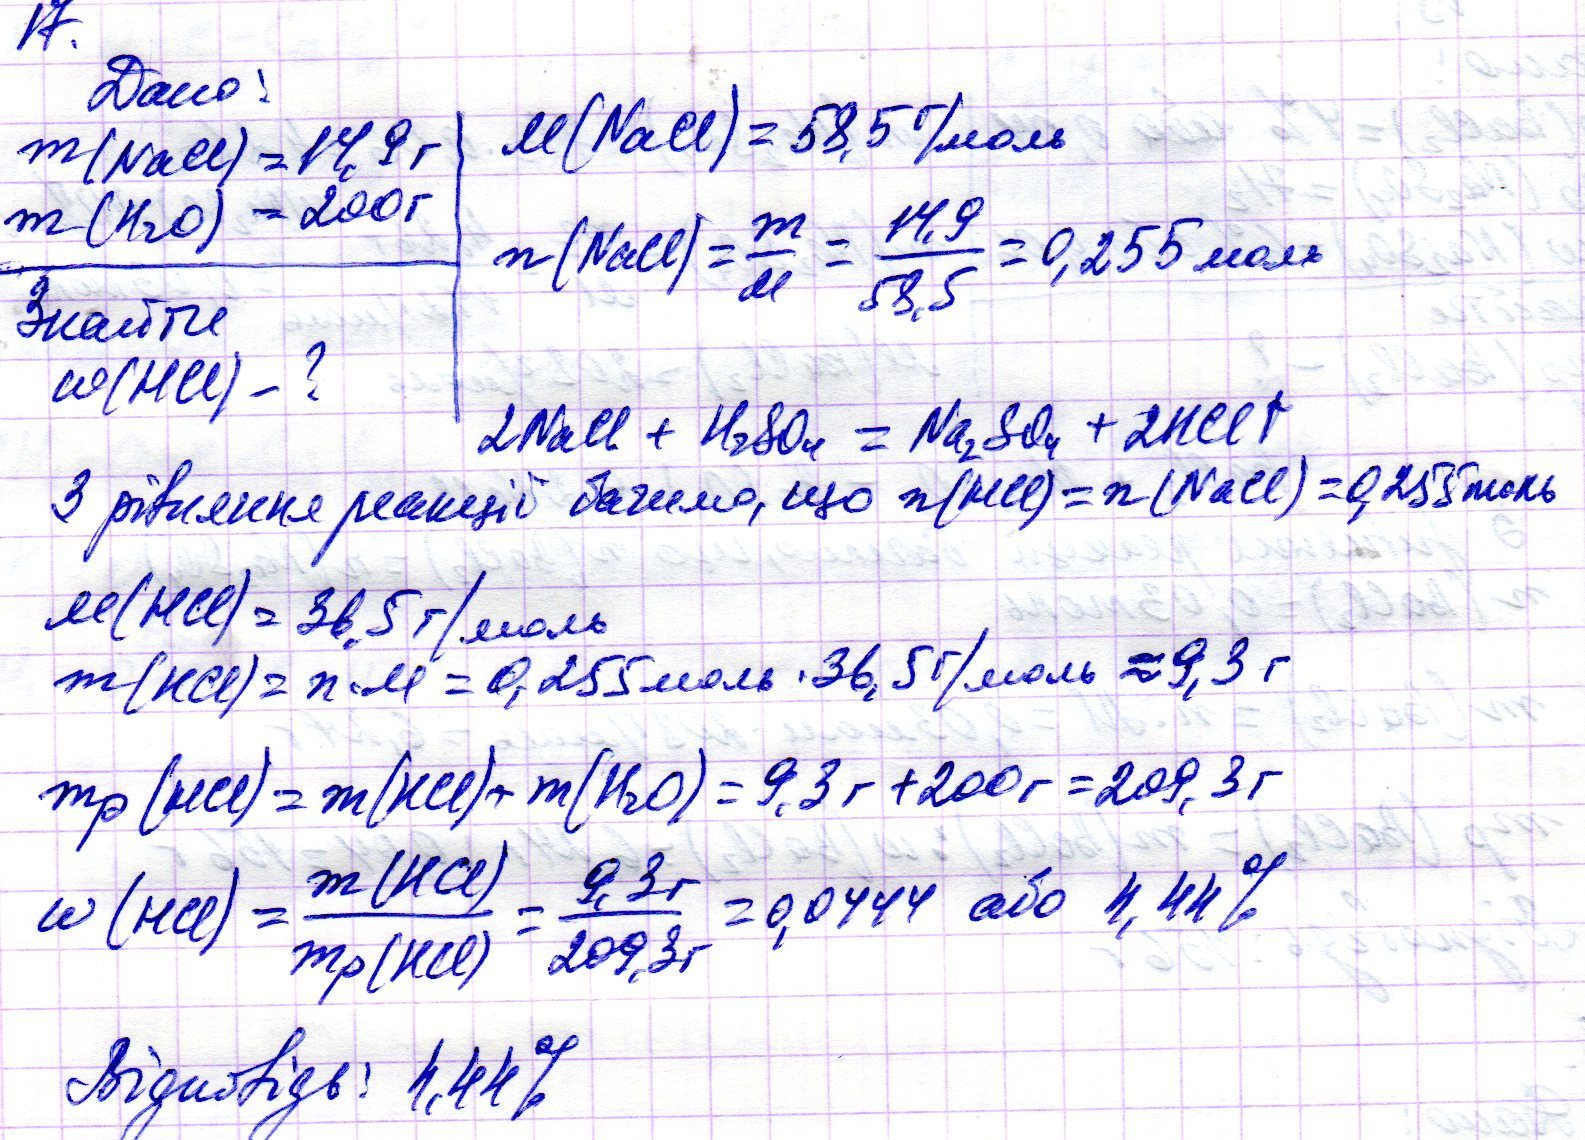 17.
Дано:
m(NaCl) = 14,9 г
m(H₂O) = 200 г
Знайти
w(HCl) - ?
M(NaCl) = 58,5 г/моль
n(NaCl) = m/M = 14,9/58,5 = 0,255 моль
2NaCl + H₂SO₄ = Na₂SO₄ + 2HCl↑
З рівняння реакції бачимо, що n(HCl) = n(NaCl) = 0,255 моль
M(HCl) = 36,5 г/моль
m(HCl) = n·M = 0,255 моль · 36,5 г/моль ≈ 9,3 г
mр(HCl) = m(HCl) + m(H₂O) = 9,3 г + 200 г = 209,3 г
w(HCl) = m(HCl)/mр(HCl) = 9,3 г/209,3 г = 0,0444 або 4,44%
Відповідь: 4,44%